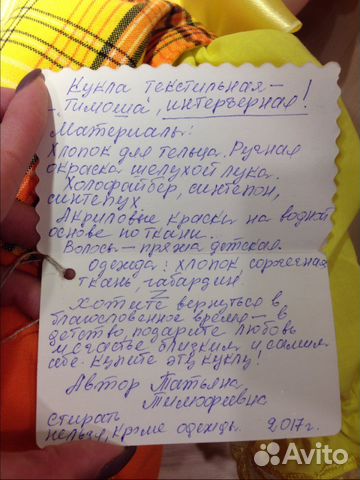 Кукла текстильная –
- "Тимоша", интерьерная!
Материалы:
Хлопок для тельца. Ручная
окраска шелухой лука.
Холофайбер, синтепон,
синтепух.
Акриловые краски на водной
основе по ткани.
Волосы – пряжа детская.
Одежда: хлопок, сорочечная
ткань, габардин.
Хотите вернуться в
благословенное время – в
детство, подарите любовь
и счастье близким и самим
себе. Купите эту куклу!
Автор Татьяна
Тимофеевна
Стирать
нельзя, кроме одежды. 2017г.
Avito